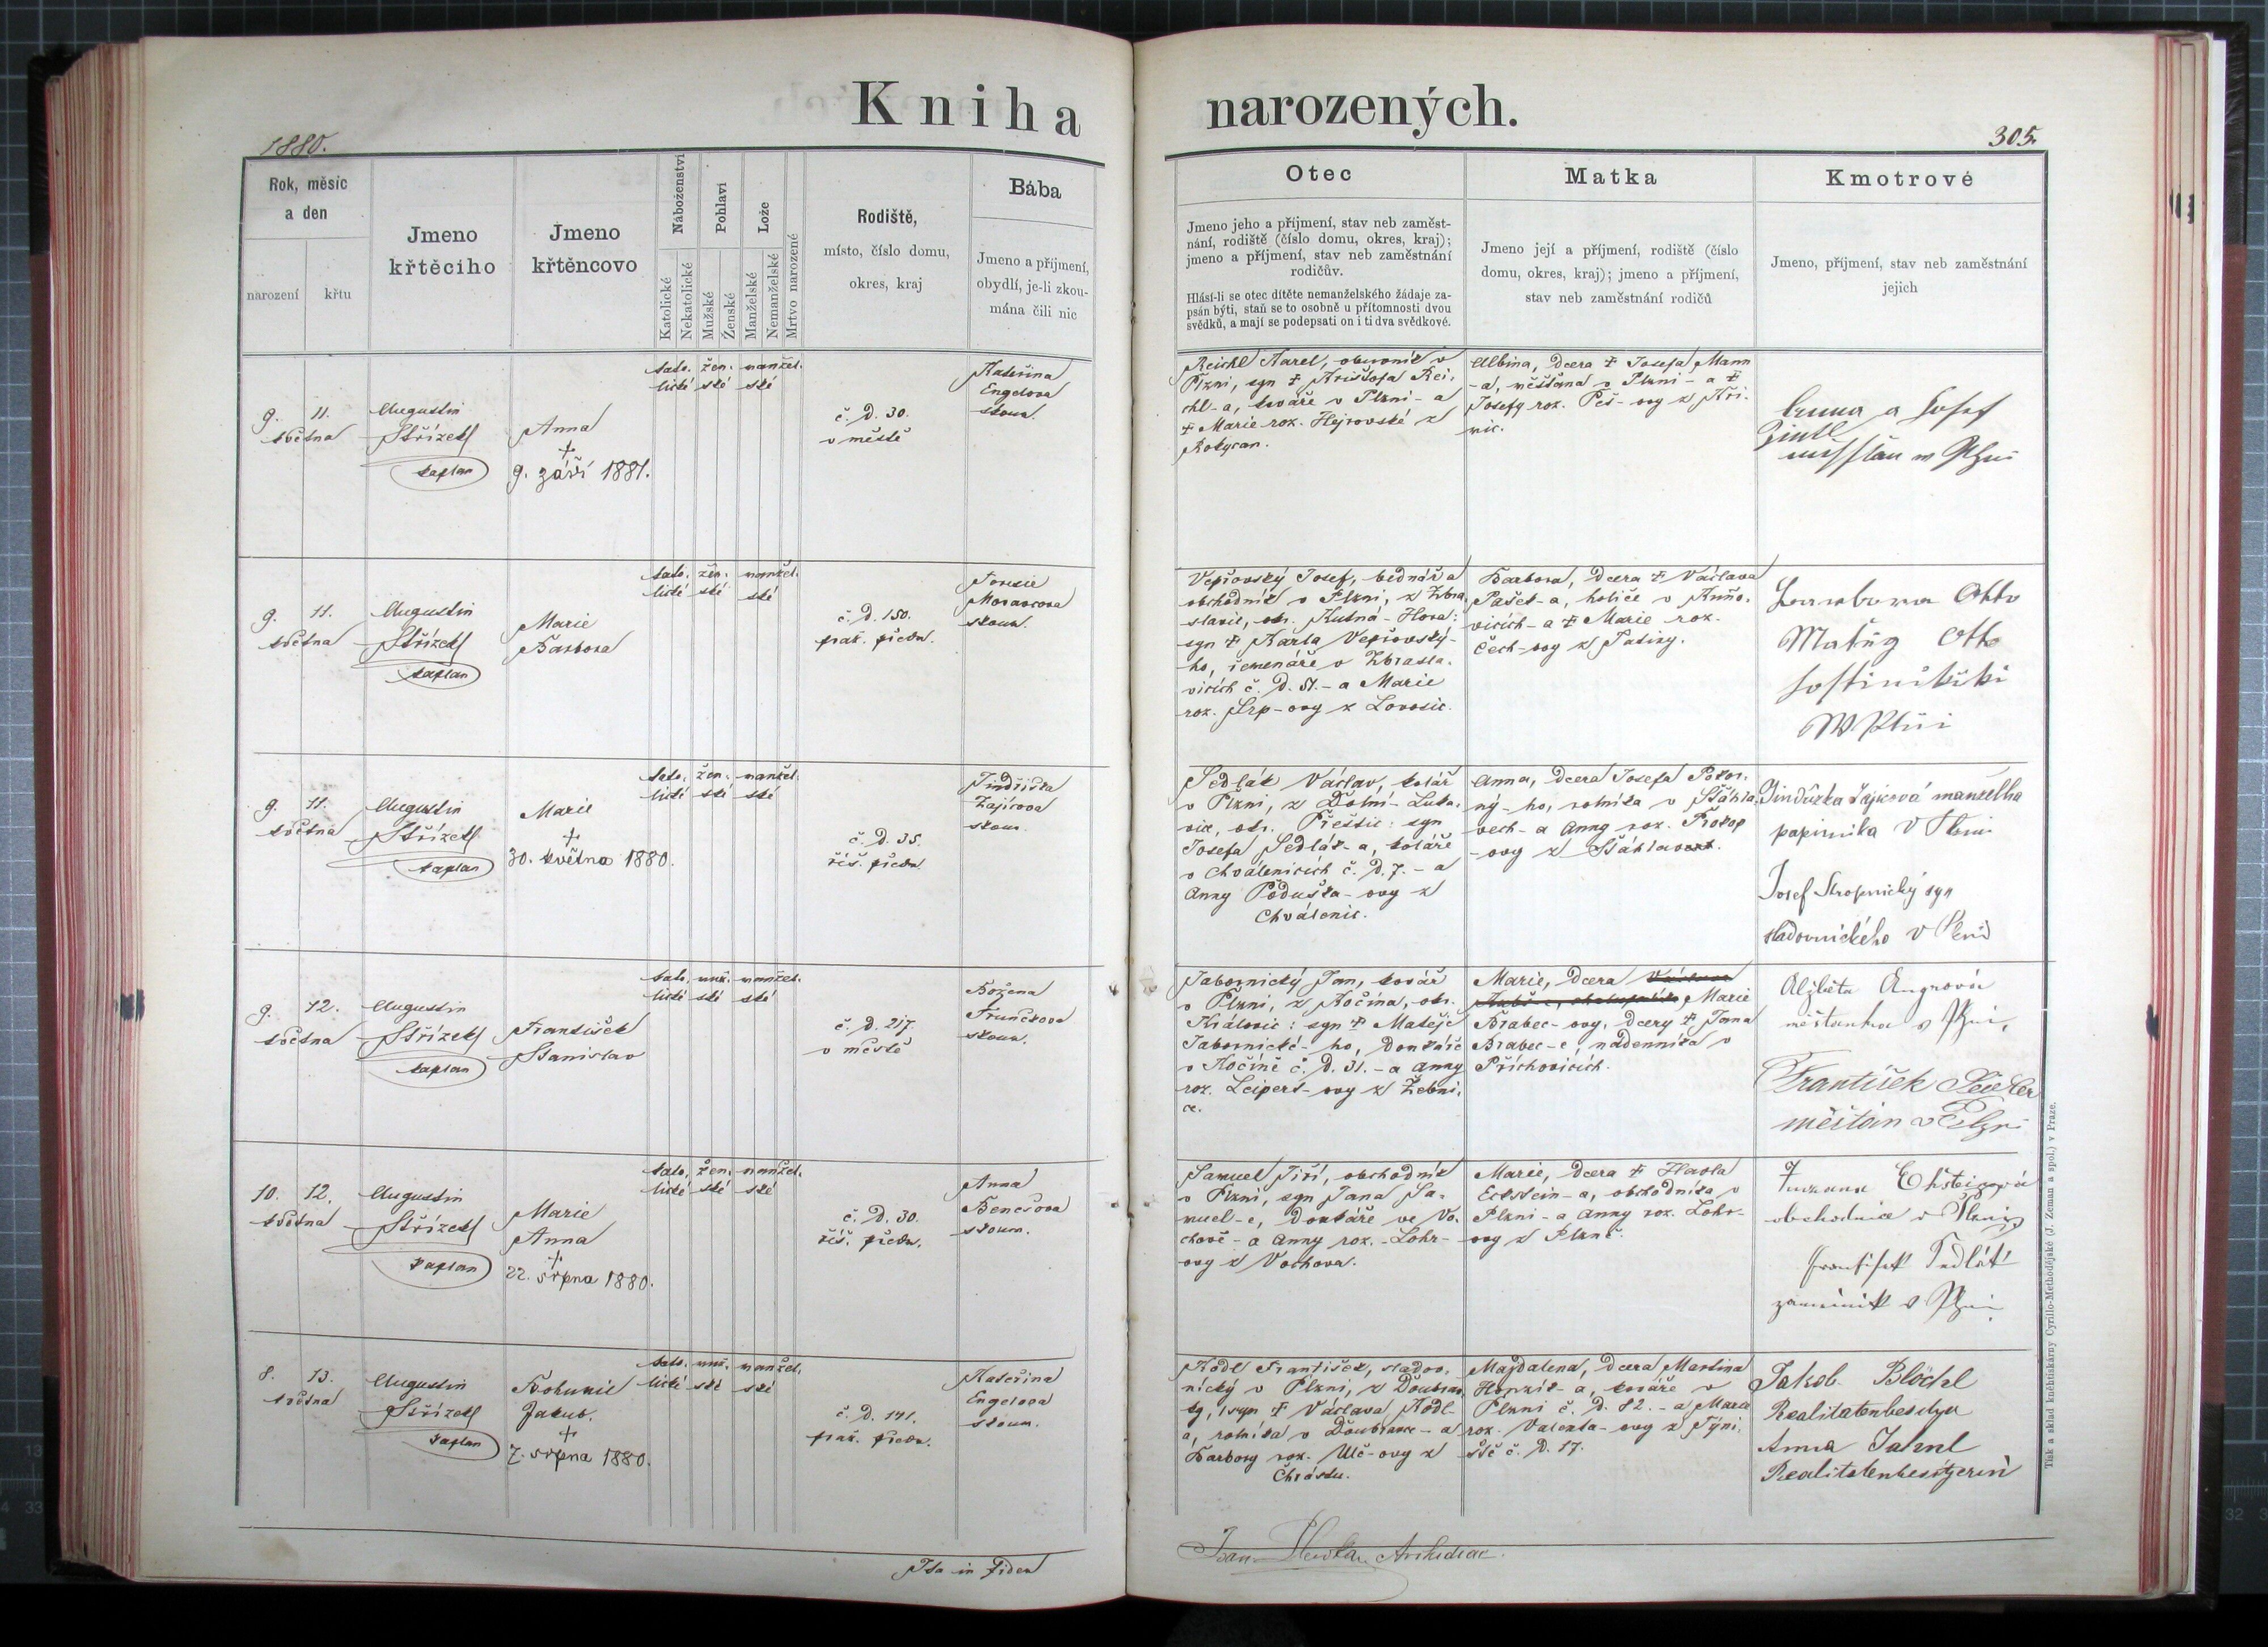 Kniha narozených.
1880.
305.
Rok, měsíc
a den
narození
křtu
Jmeno
křtěcího
Jmeno
křtěncovo
Náboženství
Katolické
Nekatolické
Pohlaví
Mužské
Ženské
Lože
Manželské
Nemanželské
Mrtvo narozené
Rodiště,
místo, číslo domu,
okres, kraj
Bába
Jmeno a příjmení,
obydlí, je-li zkou-
mána čili nic
Otec
Jmeno jeho a příjmení, stav neb zaměst-
nání, rodiště (číslo domu, okres, kraj);
jmeno a příjmení, stav neb zaměstnání
rodičův.
Hlásí-li se otec dítěte nemanželského žádaje za-
psán býti, staň se to osobně u přítomnosti dvou
svědků, a mají se podepsati on i ti dva svědkové.
Matka
Jmeno její a příjmení, rodiště (číslo
domu, okres, kraj); jmeno a příjmení,
stav neb zaměstnání rodičů
Kmotrové
Jmeno, příjmení, stav neb zaměstnání
jejich
9. 11.
května
Augustin
Střízek
kaplan
Anna
†
9. září 1881.
kato. žen. manžel.
lické ské ské
č. d. 30.
v městě
Kateřina
Engelova
zkoum.
Reichl Karel, obuvník v
Plzni, syn † Krištofa Rei-
chl-a, kováře v Plzni - a
† Marie roz. Hejrovské z
Rokycan.
Albina, dcera † Josefa Mann
-a, měšťana v Plzni - a †
Josefy roz. Peš-ovy z Kři-
mic.
Anna a Josef
9. 11.
května
Augustin
Střízek
kaplan
Marie
Barbora
kato. žen. manžel.
lické ské ské
č. d. 150.
praž. předm.
Terezie
Moravcova
zkoum.
Vepřovský Josef, bednář a
obchodník v Plzni, z Zbra-
slavic, okr. Kutná-Hora:
syn † Karla Vepřovský-
ho, řemenáře v Zbrasla-
vicích č. d. 51. - a Marie
roz. Srp-ovy z Lovosic.
Barbora, dcera † Václava
Pašek-a, holiče v Kuňo-
vicích - a † Marie roz.
Čech-ovy z Patiny.
Barbora Otto
Matěj Otto
hostinští
W Plzni
9. 11.
května
Augustin
Střízek
kaplan
Marie
†
30. května 1880.
kato. žen. manžel.
lické ské ské
č. d. 35.
říš. předm.
Jindřiška
Zajícova
zkoum.
Sedlák Václav, kolář
v Plzni, z Dolní-Luka-
vice, okr. Přeštic: syn
Josefa Sedlák-a, koláře
v Chválenicích č. d. 7. - a
Anny Poduška-ovy z
Chválenic.
Anna, dcera Josefa Pokor-
ný-ho, rolníka v Šťáhla-
vech - a Anny roz. Prokop
-ovy z Šťáhlavech.
Jindřiška Zajícová manželka
papírníka v Plzni
Josef Stropnický syn
sladovnického v Plzni
9. 12.
května
Augustin
Střízek
kaplan
František
Stanislav
kato. muž. manžel.
lické ské ské
č. d. 217.
v městě
Božena
Frunčkova
zkoum.
Tabornický Jan, kovář
v Plzni, z Kočína, okr.
Kralovic: syn † Matěje
Tabornické-ho, domkáře
v Kočíně č. d. 31. - a Anny
roz. Leipert-ovy z Žebni-
ce.
Marie, dcera
Marie
Brabec-ovy, dcery † Jana
Brabec-e, nádenníka v
Příchovicích.
Alžběta Angrová
měštanka v Plzni,
František
měštán v Plzni
10. 12.
května
Augustin
Střízek
kaplan
Marie
Anna
†
22. srpna 1880.
kato. žen. manžel.
lické ské ské
č. d. 30.
říš. předm.
Anna
Benešova
zkoum.
Samuel Jiří, obchodník
v Plzni, syn Jana Sa-
muel-e, domkáře ve Vo-
chově - a Anny roz. Lohr-
ovy z Vochova.
Marie, dcera † Havla
Eckstein-a, obchodníka v
Plzni - a Anny roz. Lohr-
ovy z Plzně.
Zuzana Ekšteinová
obchodnice v Plzni
František Sedlák
zámečník v Plzni
8. 13.
května
Augustin
Střízek
kaplan
Bohumil
Jakub.
†
7. srpna 1880.
kato. muž. manžel.
lické ské ské
č. d. 141.
praž. předm.
Kateřina
Engelova
zkoum.
Kodl František, sladov-
nický v Plzni, z Doubrav-
ky, syn † Václava Kodl-
a, rolníka v Doubravce - a
Barbory roz. Ulč-ovy z
Chrástu.
Majdalena, dcera Martina
Hopzik-a, kováře v
Plzni č. d. 82. - a Marie
roz. Valenta-ovy z Týni-
ště č. d. 17.
Jakob Blöchl
Realitatenbesitzer
Anna Jahnl
Realitatenbesitzerin
Ita in fidem
Archidiac.
Tisk a sklad kněhtiskárny Cyrillo-Methodějské (J. Zeman a spol.) v Praze.